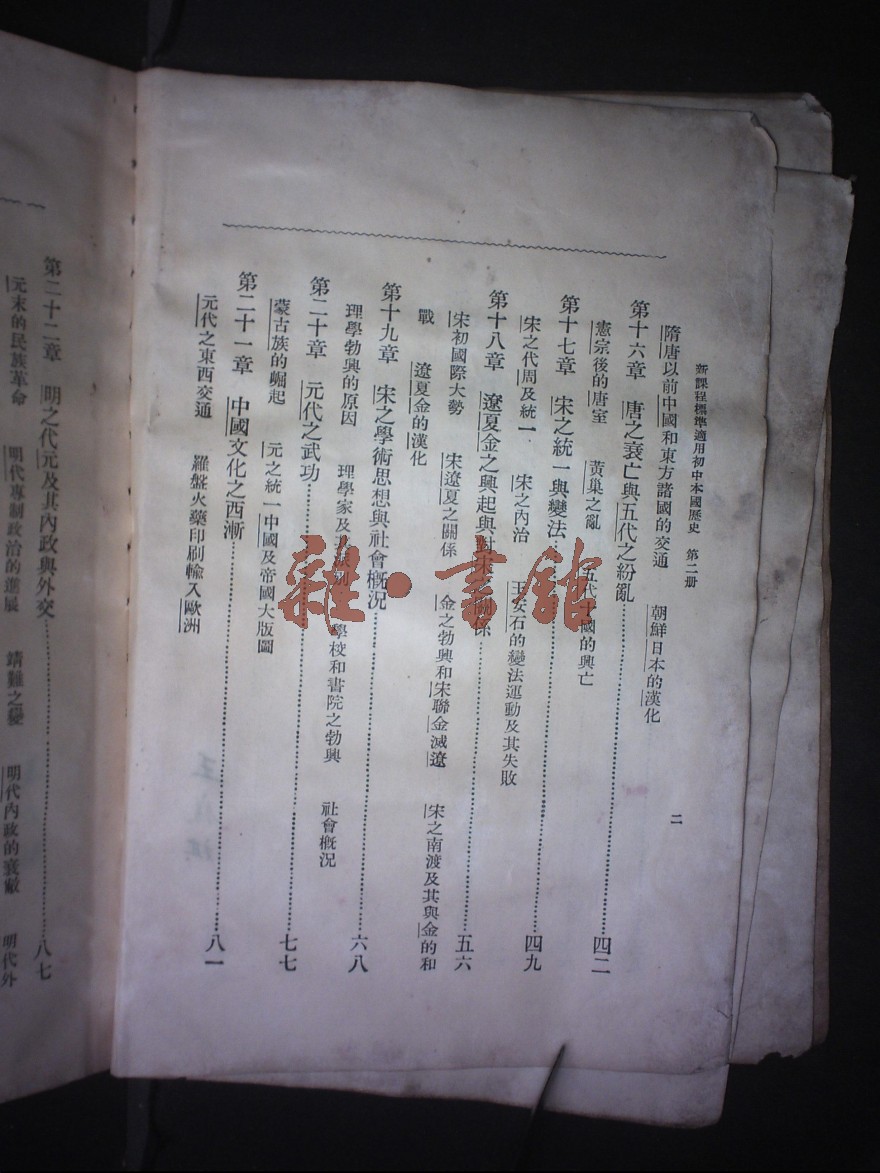 新課程標準適用初中本國歷史 第二册
二
隋唐以前中國和東方諸國的交通 朝鮮日本的漢化
第十六章 唐之衰亡與五代之紛亂……四二
憲宗後的唐室 黃巢之亂 五代十國的興亡
第十七章 宋之統一與變法……四九
宋之代周及統一 宋之內治 王安石的變法運動及其失敗
第十八章 遼夏金之興起與對宋之關係……五六
宋初國際大勢 宋遼夏之關係 金之勃興和宋聯金滅遼 宋之南渡及其與金的和
戰 遼夏金的漢化
第十九章 宋之學術思想與社會概況……六八
理學勃興的原因 理學家及其派別 學校和書院之勃興 社會概況
第二十章 元代之武功……七七
蒙古族的崛起 元之統一中國及帝國大版圖
第二十一章 中國文化之西漸……八一
元代之東西交通 羅盤火藥印刷輸入歐洲
第二十二章 明之代元及其內政與外交……八七
元末的民族革命 明代專制政治的進展 靖難之變 明代內政的衰敝 明代外
雜·書館